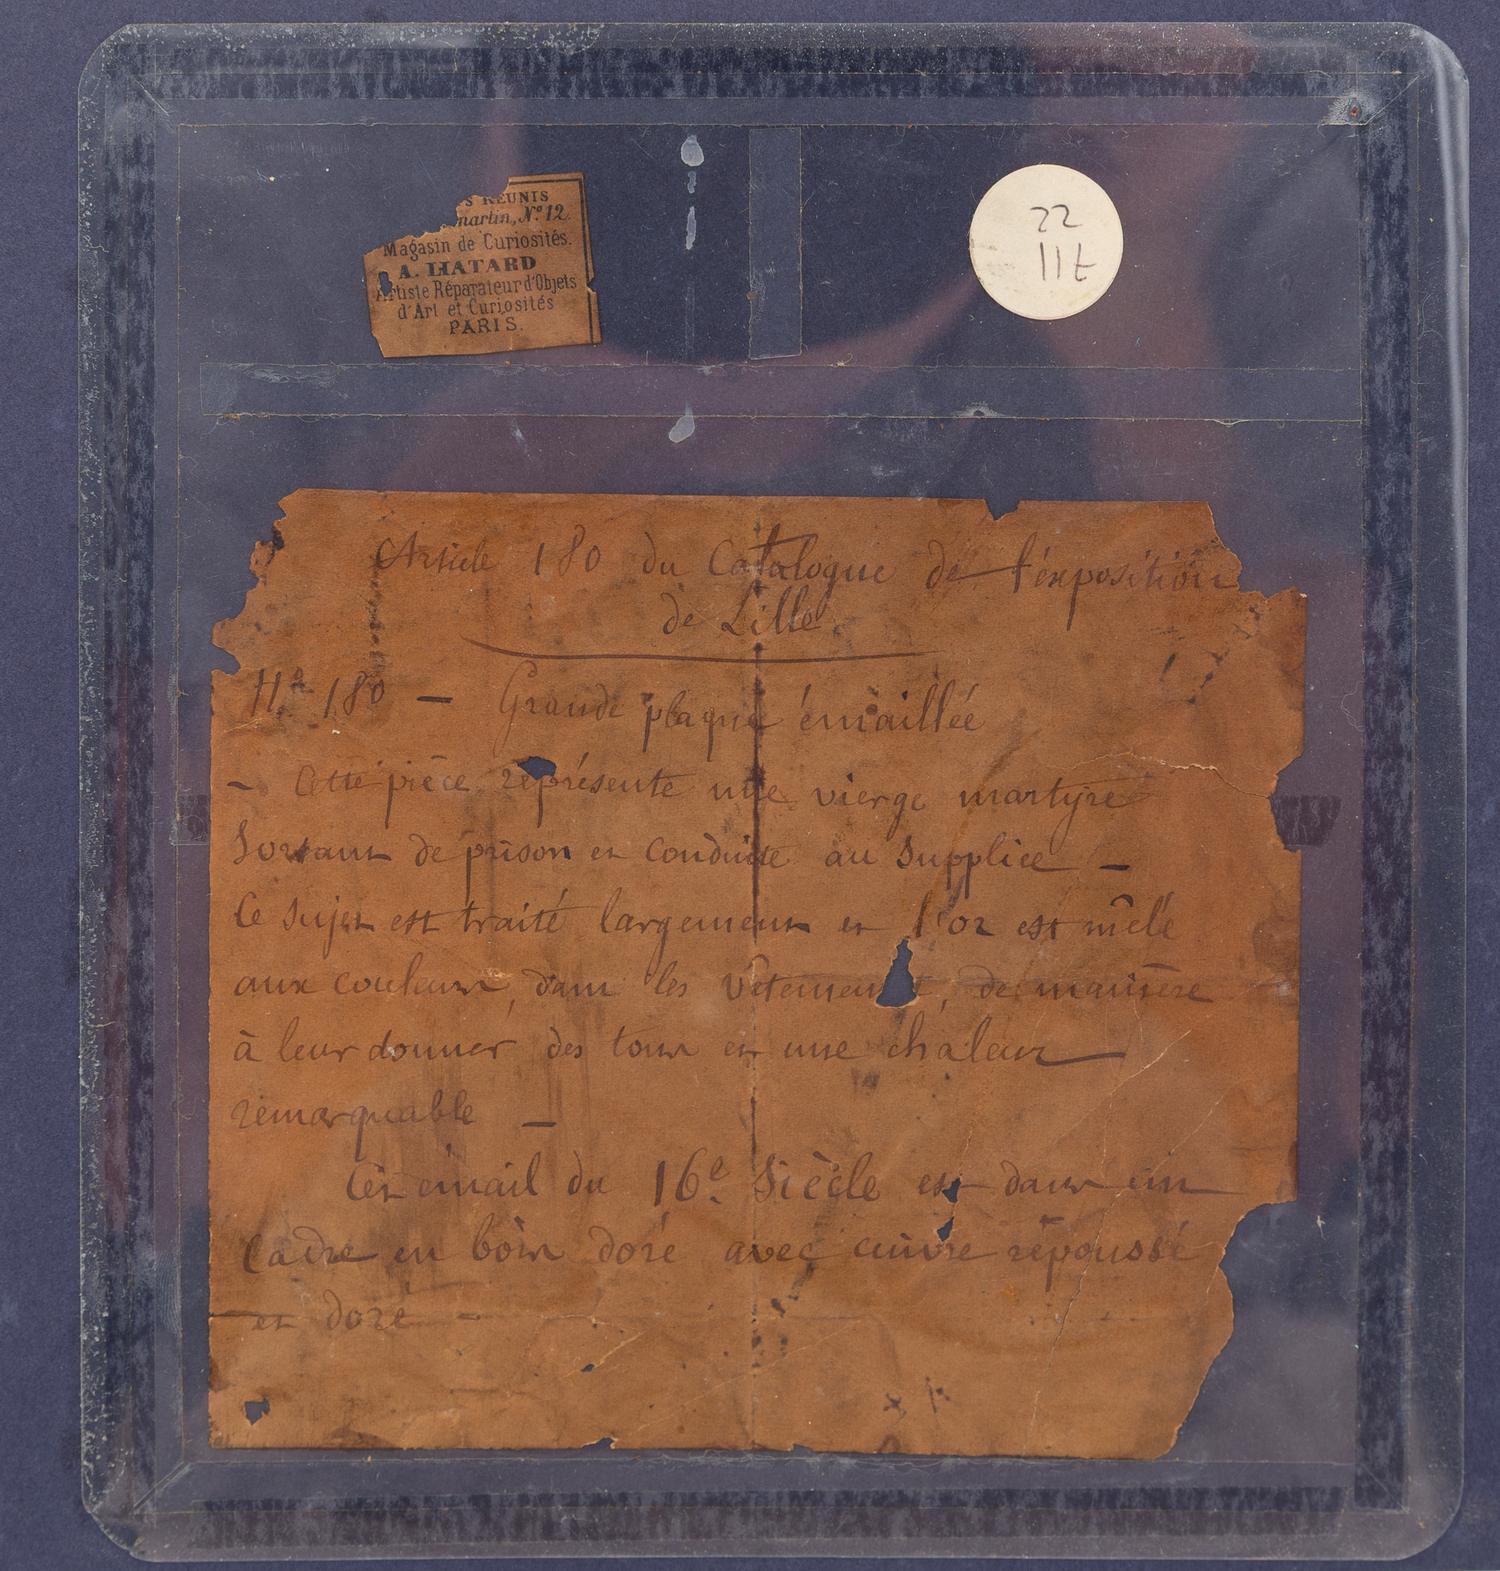 S RÉUNIS
martin, Nº 12.
Magasin de Curiosités.
A. HATARD
Artiste Réparateur d'Objets
d'Art et Curiosités
PARIS.
22
117
Article 180 du Catalogue de l'exposition
de Lille
Nº 180 — Grande plaque émaillée
- Cette pièce représente une vierge martyre
Sortant de prison et conduite au supplice —
Ce sujet est traité largement et l'or est mêlé
aux couleurs, dans les vêtements, de manière
à leur donner des tons et une chaleur
remarquable —
Cet émail du 16e Siècle est dans un
Cadre en bois doré avec cuivre repoussé
et doré -